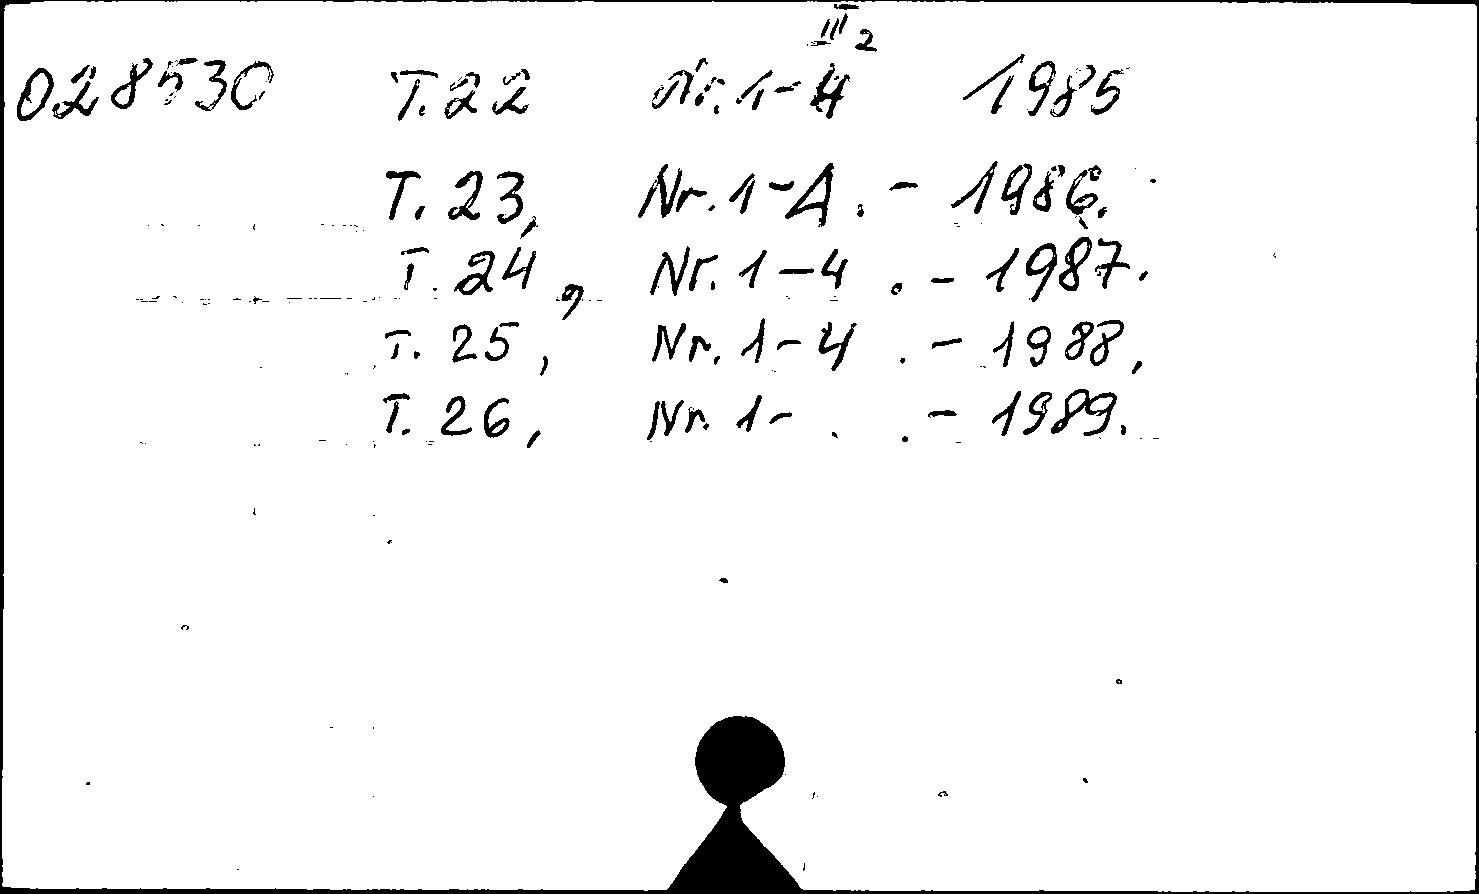 III 2
028530 T. 22 Nr. 1-4 1985
T. 23, Nr. 1-4. - 1986.
T. 24, Nr. 1-4 . - 1987.
T. 25, Nr. 1-4 . - 1988,
T. 26, Nr. 1- . - 1989.